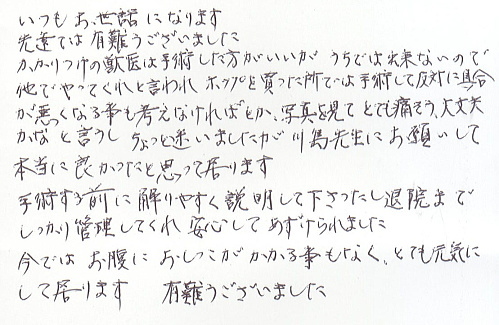 いつもお世話になります
先達ては有難うございました
かかりつけの獣医は手術した方がいいが うちでは出来ないので
他でやってくれと言われ ホップを買った所では手術して反対に具合
が悪くなる事も考えなければとか、写真を見て とても痛そう、大丈夫
かな と言うし ちょっと迷いましたが 川島先生に お願いして
本当に良かったと思って居ります
手術する前に 解りやすく説明して下さったし退院まで
しっかり管理してくれ 安心して あずけられました
今では お腹に おしっこが かかる事もなく、とても元気に
して居ります 有難うございました